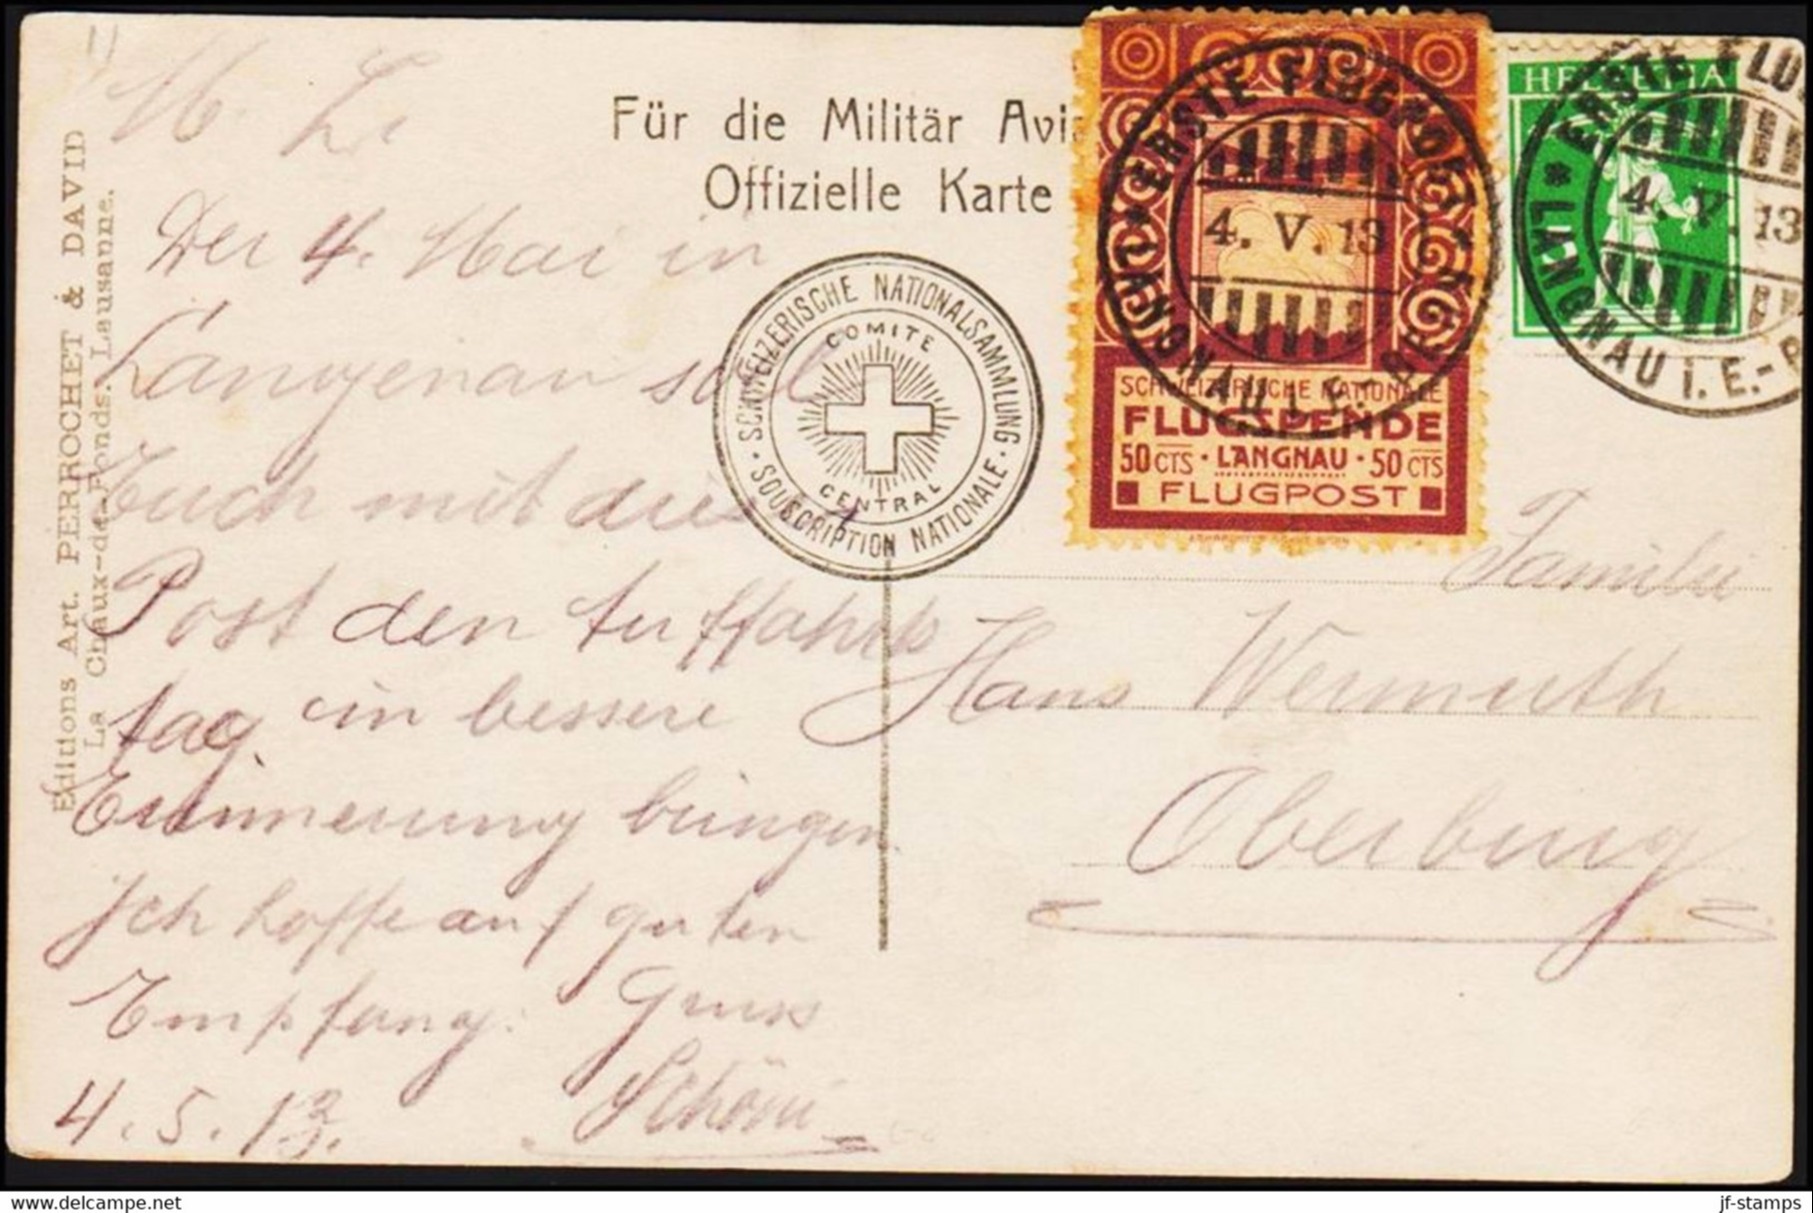 M. L.
Der 4. Mai in
Langenau soll
Euch mit dies
Post den Auffahrts
tag. in bessere
Erinnerung bringen
Ich hoffe auf guten
Empfang. Gruss
4.5.13.
Schöni
Editions Art. PERROCHET & DAVID
La Chaux-de-Fonds. Lausanne.
Für die Militär Avi
Offizielle Karte
SCHWEIZERISCHE NATIONALSAMMLUNG
SOUSCRIPTION NATIONALE
COMITE
CENTRAL
ERSTE FLUGPOST
4.V.13
LANGNAU i.E.-BE
SCHWEIZERISCHE NATIONALE
FLUGSPENDE
50 CTS · LANGNAU · 50 CTS
FLUGPOST
HELVETIA
ERSTE FLU
4.V.13
LANGNAU i.E.-B
Familie
Hans Wermuth
Oberburg
www.delcampe.net
jf-stamps